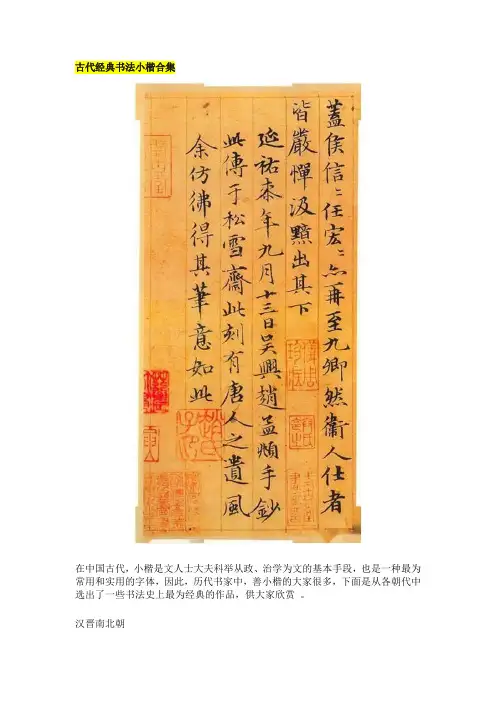 古代经典书法小楷合集
蓋侯信〻任宏〻亦再至九卿然衞人仕者
皆嚴憚汲黯出其下
延祐桼年九月十三日吳興趙孟頫手鈔
此傳于松雪齋此刻有唐人之遺風
余仿彿得其筆意如此
在中国古代，小楷是文人士大夫科举从政、治学为文的基本手段，也是一种最为
常用和实用的字体，因此，历代书家中，善小楷的大家很多，下面是从各朝代中
选出了一些书法史上最为经典的作品，供大家欣赏 。
汉晋南北朝